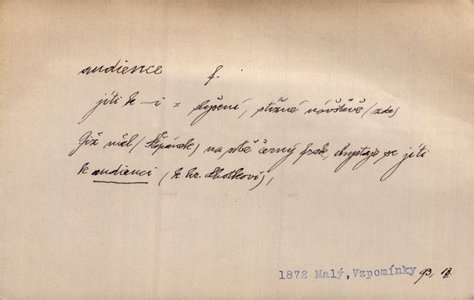 audience f.
jíti k –i × slyšení, stižné návštěvě / zdes
Již měl / Štěpánek / na sobě černý frak, chystaje se jíti
k audienci (k hr. Chotkovi),
1872 Malý, Vzpomínky 93, 18